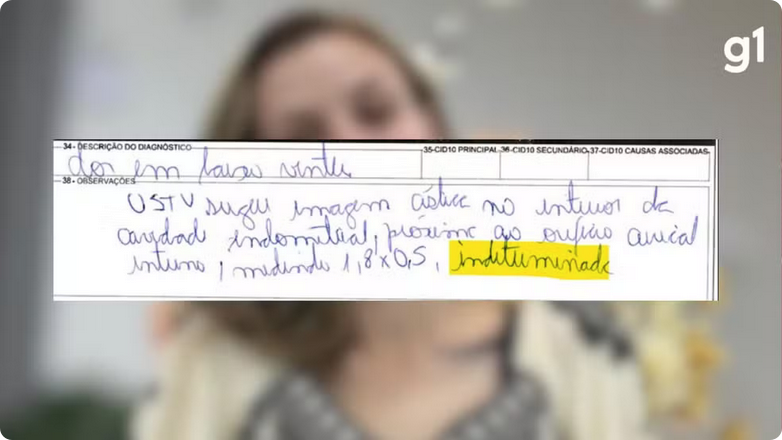 g1
34- DESCRIÇÃO DO DIAGNÓSTICO
35-CID10 PRINCIPAL 36-CID10 SECUNDÁRIO 37-CID10 CAUSAS ASSOCIADAS
dor em baixo ventre
38- OBSERVAÇÕES
USTV sugere imagem cística no interior da
cavidade endometrial, próximo ao orifício cervical
interno, medindo 1,8x0,5, indeterminada